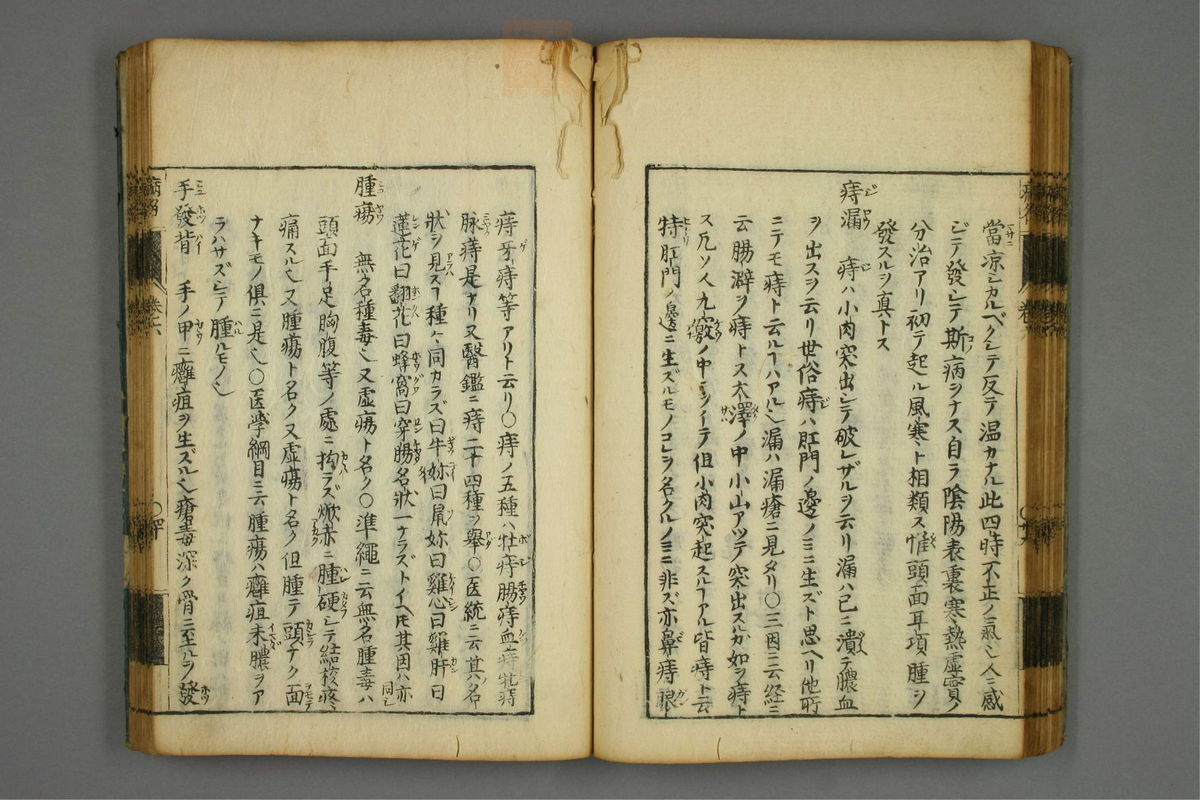 當凉シカルベクシテ反テ温カナル此四時不正ノ氣也人ニ感
ジテ発シテ斯病ヲナス自ラ陰陽表裏寒熱虚實ノ
分治アリ初テ起ル風寒ト相類ス惟頭面耳項腫ヲ
發スルヲ真トス
痔漏 痔ハ小肉突出シテ破レザルヲ云リ漏ハ已ニ潰テ膿血
ヲ出スヲ云リ世俗痔ハ肛門ノ邊ノミニ生ズト思ヘリ他所
ニテモ痔ト云ルヿハアル也漏ハ漏瘡ニ見タリ○三因ニ云経ニ
云腸澼ヲ痔トス大澤ノ中小山アツテ突出スガ如ヲ痔ト
ス凡ソ人九竅ノ中ニヲイテ但小肉突起スルヿアル皆痔ト云
特肛門ノ邊ニ生ズルモノコレヲ名クルノミニ非ズ亦鼻痔眼
痔牙痔等アリト云リ○痔ノ五種ハ牡痔腸痔血痔牝痔
脉痔是ナリ又醫鑑ニ痔二十四種ヲ舉○医統ニ云其名
狀ヲ見スヿ種々同カラズ曰牛妳曰鼠妳曰雞心曰雞肝曰
蓮花曰翻花曰蜂窩曰穿腸名狀一ナラズトイヘ𪜈其因ハ亦同シ
腫瘍 無名種毒也又虚瘍ト名ク○準繩ニ云無名腫毒ハ
頭面手足胸腹等ノ處ニ拘ラズ焮赤ニ腫硬シテ結核疼
痛スル也又腫瘍ト名ク又虚瘍ト名ク但腫テ頭ナク面
ナキモノ俱ニ是也○医学綱目ニ云腫瘍ハ癰疽未膿ヲア
ラハサズシテ腫ルモノ也
手發背 手ノ甲ニ癰疽ヲ生ズル也瘡毒深ク骨ニ至ルヲ發